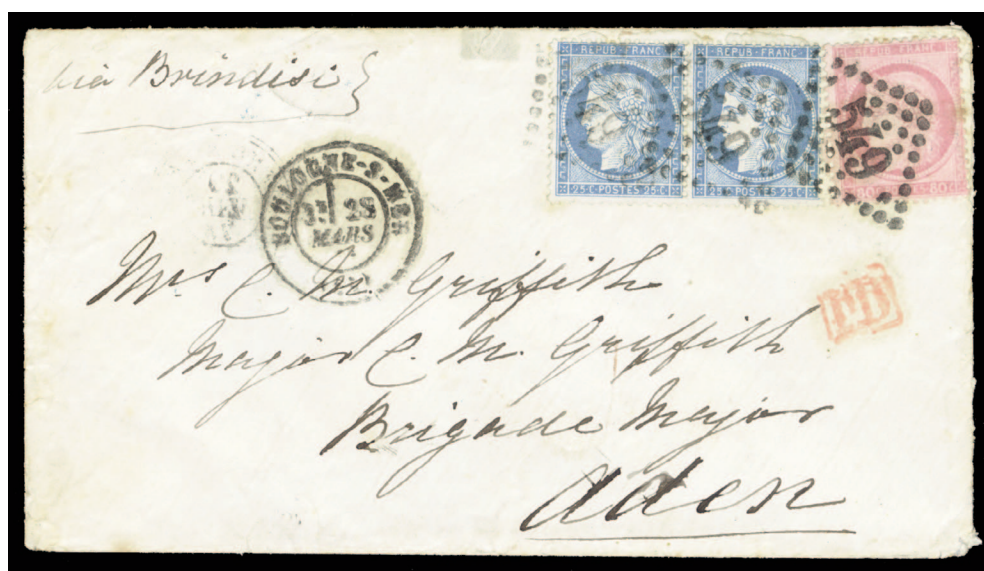 via Brindisi
REPUB · FRANC
REPUB · FRANC
REPUB · FRANC
25 C · POSTES · 25 C
POSTES · 25 C
POSTES · 80 C
549
BOULOGNE-S-MER
28
MARS
PD
Mrs C. M. Griffith
Major C. M. Griffith
Brigade Major
Aden